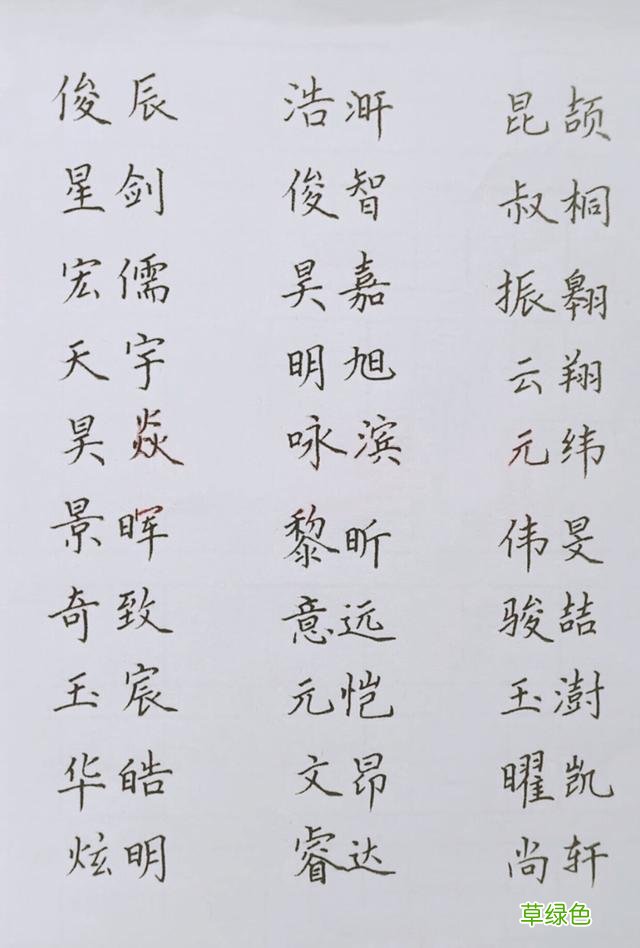 俊辰 浩汧 昆颉
星剑 俊智 叔桐
宏儒 昊嘉 振翱
天宇 明旭 云翔
昊焱 咏滨 元纬
景晖 黎昕 伟旻
奇致 意远 骏喆
玉宸 元恺 玉澍
华皓 文昂 曜凯
炫明 睿达 尚轩
草绿色